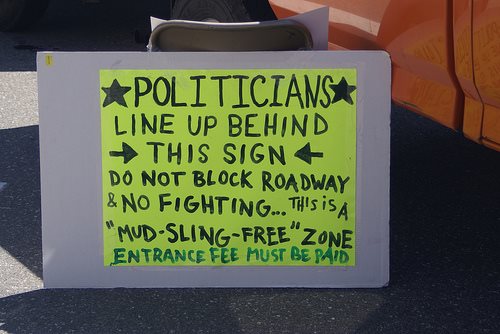 ★POLITICIANS★
LINE UP BEHIND
→ THIS SIGN ←
DO NOT BLOCK ROADWAY
& NO FIGHTING... THIS IS A
"MUD-SLING-FREE" ZONE
ENTRANCE FEE MUST BE PAID